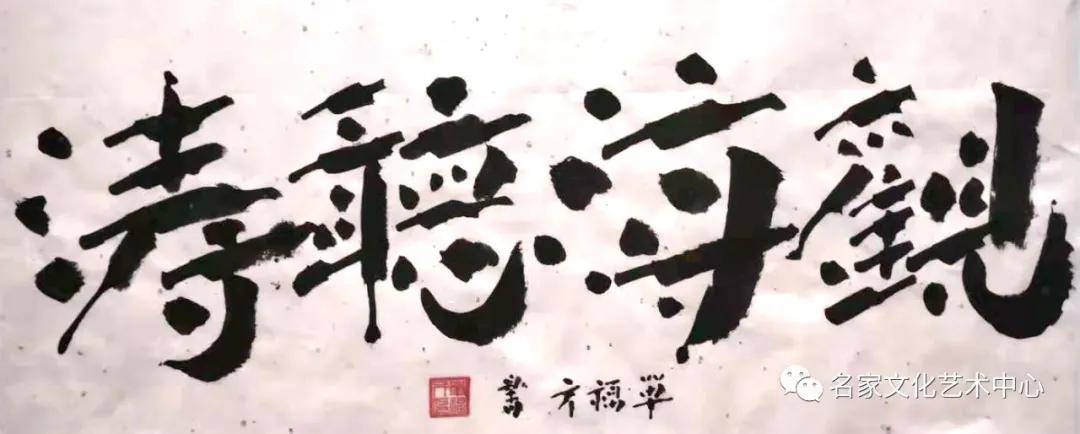 觀海聽涛
福方書
名家文化艺术中心